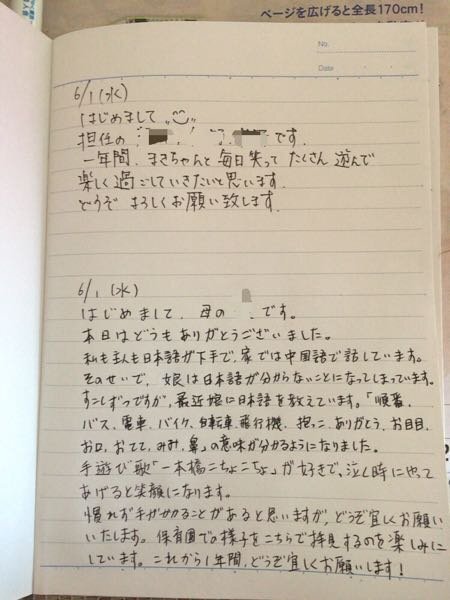 ページを広げると全長170cm!
No.
Date
6/1(水)
はじめまして
担任の です.
一年間、まきちゃんと毎日笑ってたくさん遊んで
楽しく過ごしていきたいと思います.
どうぞよろしくお願い致します.
6/1(水)
はじめまして、母の です。
本日はどうもありがとうございました。
私も主人も日本語が下手で、家では中国語で話しています。
そのせいで、娘は日本語が分からないことになってしまっています。
すこしずつですが、最近娘に日本語を教えています。「順番、
バス、電車、バイク、自転車、飛行機、抱っこ、ありがとう、お目目、
お口、おてて、みみ、鼻」の意味が分かるようになりました。
手遊び歌「一本橋こちょこちょ」が好きで、泣く時にやって
あげると笑顔になります。
慣れず手がかかることがあると思いますが、どうぞ宜しくお願い
いたします。保育園での様子をこちらで拝見するのを楽しみに
しています。これから1年間、どうぞ宜しくお願いします!